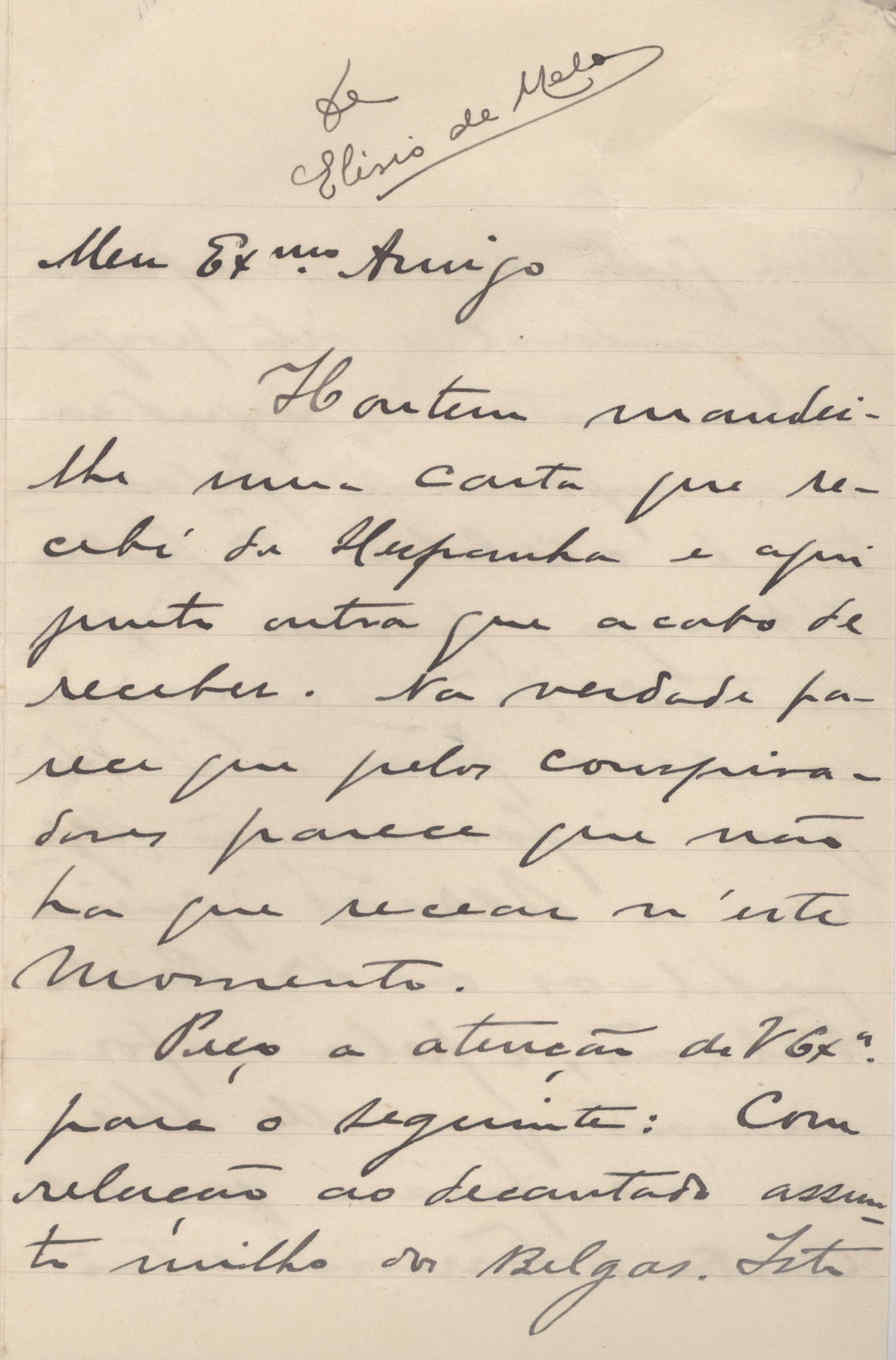 de
Elisio de Melo
Meu Exmo Amigo
Hontem mandei-
lhe uma carta que re-
cebi de Hespanha e aqui
junto outra que acabo de
receber. Na verdade pa-
rece que pelos conspira-
dores parece que não
ha que recear n'este
momento.
Peço a atenção de V Exa.
para o seguinte: Com
relação ao decantado assum-
to milho dos Belgas. Isto